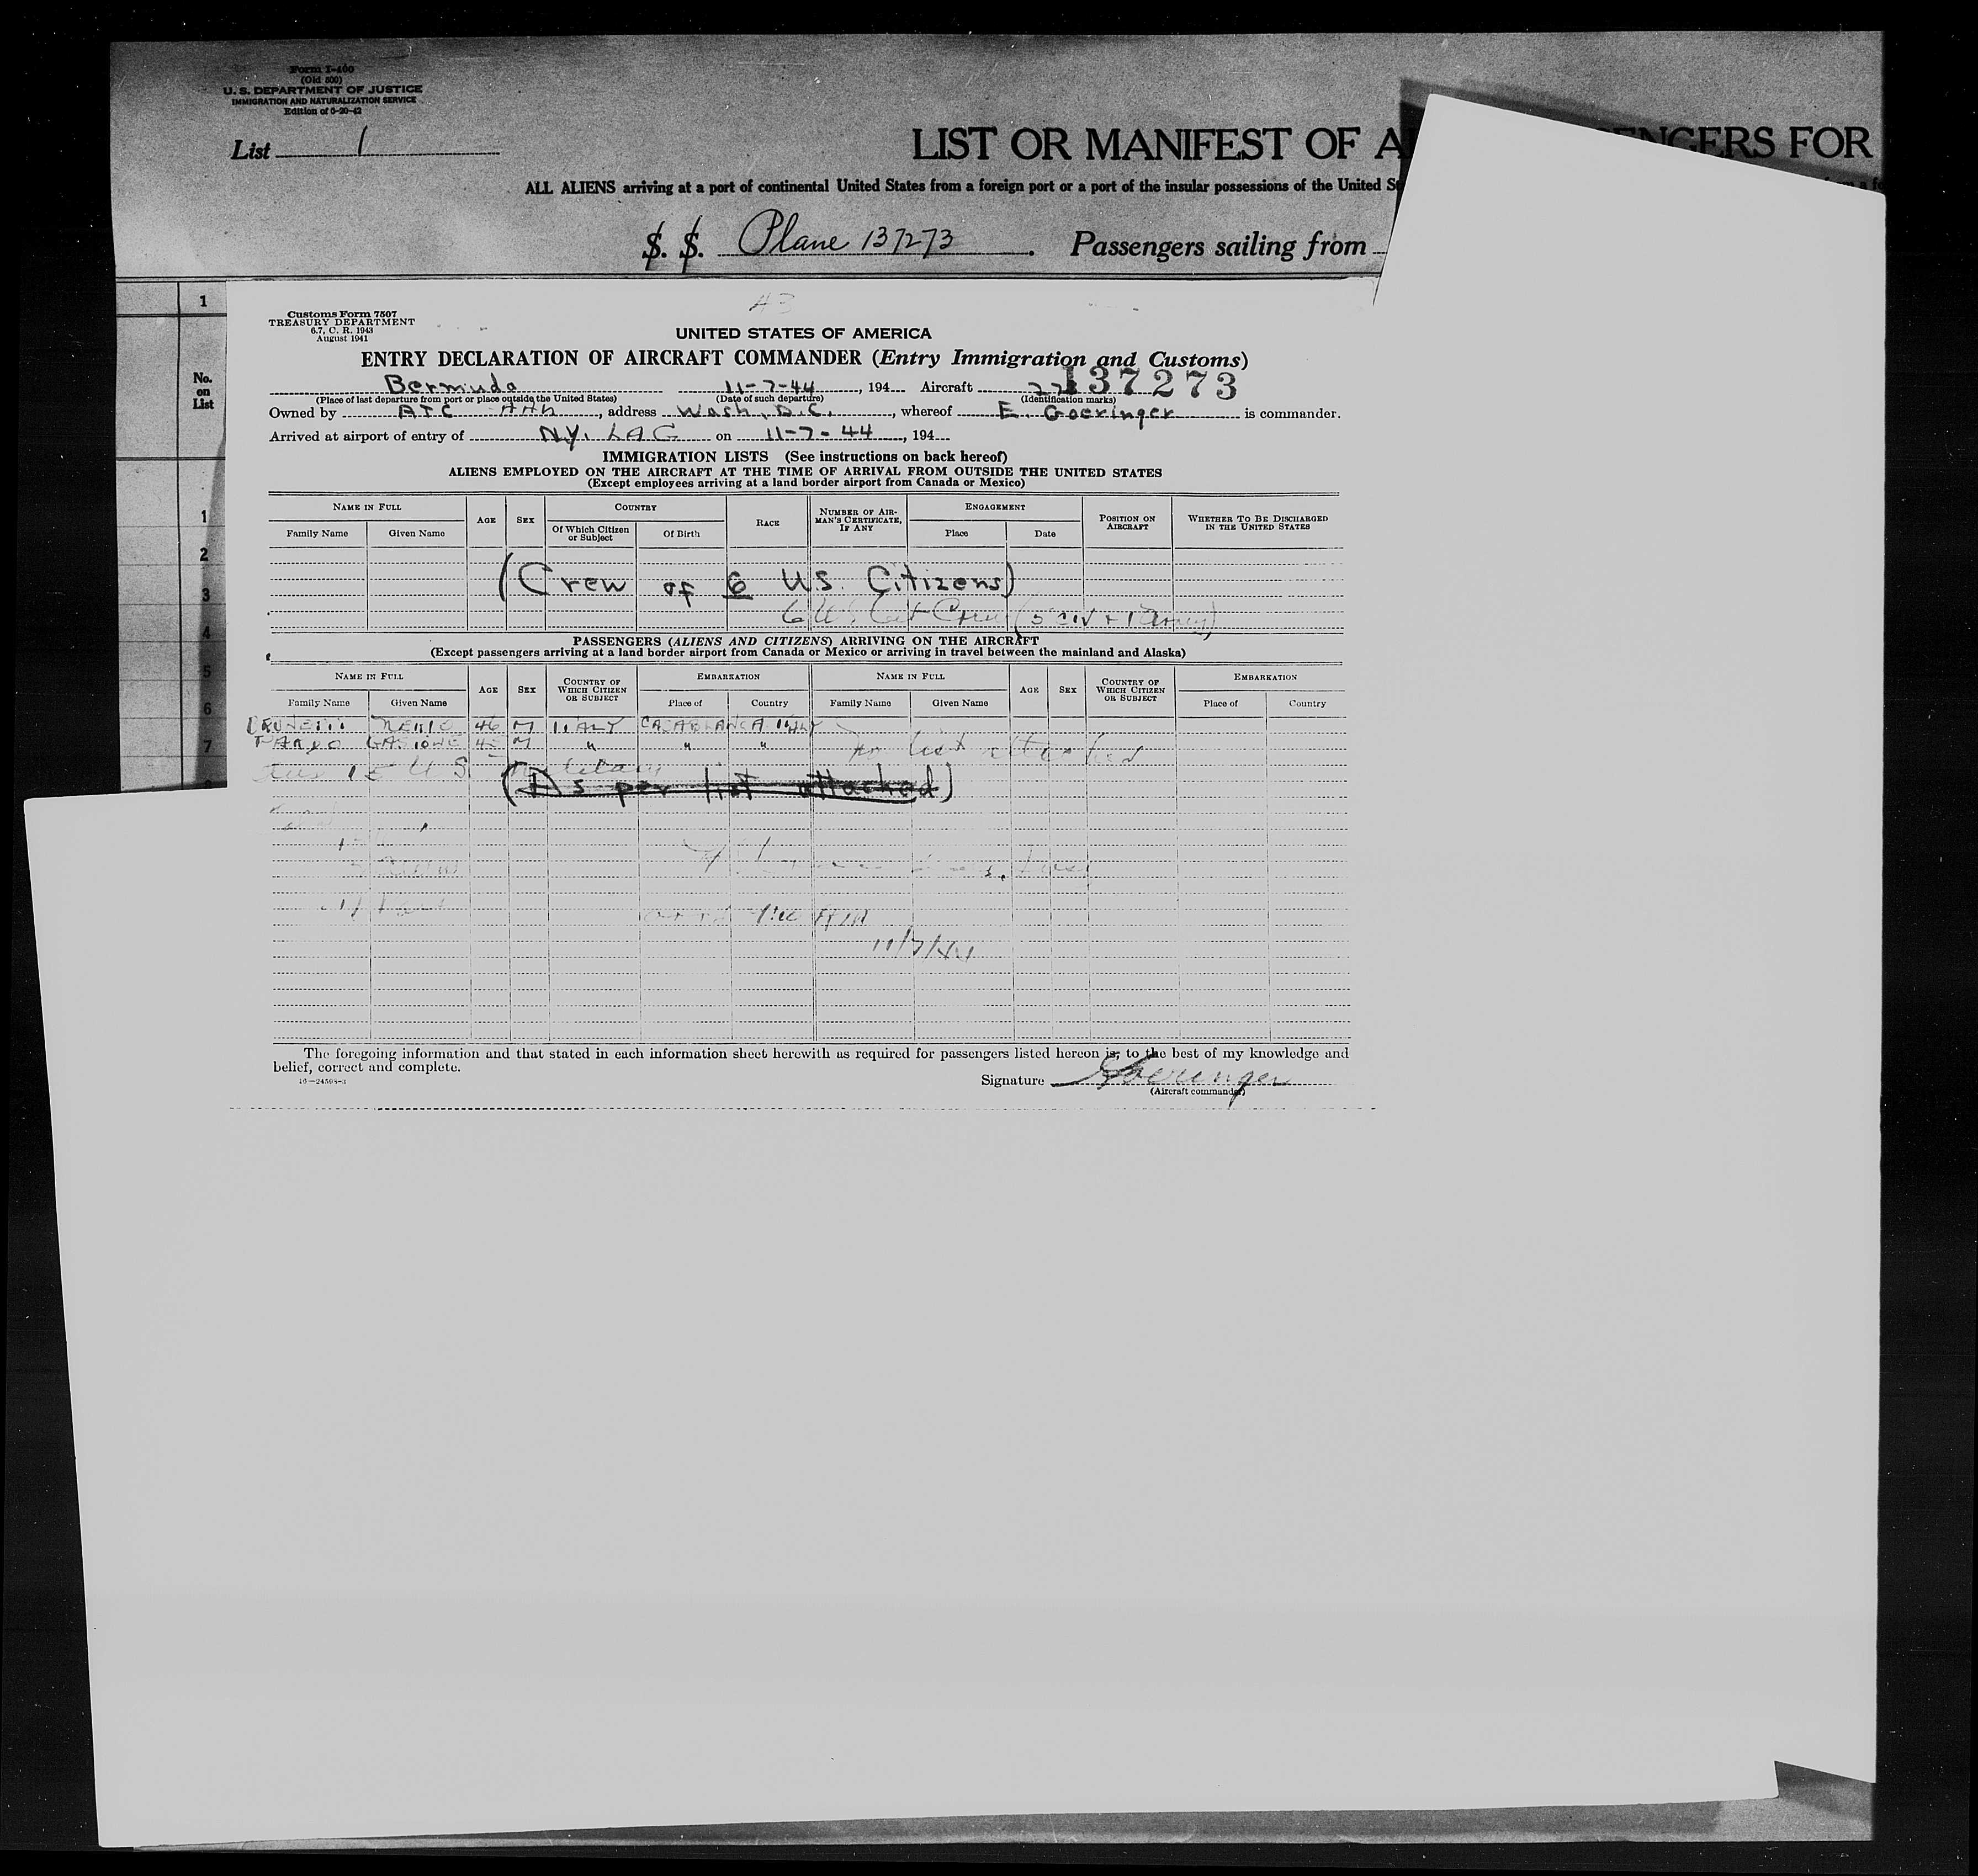 Form I-400
(Old 500)
U. S. DEPARTMENT OF JUSTICE
IMMIGRATION AND NATURALIZATION SERVICE
Edition of 6-20-42
List 1
LIST OR MANIFEST OF A ENGERS FOR
ALL ALIENS arriving at a port of continental United States from a foreign port or a port of the insular possessions of the United St
S. S. Plane 137273. Passengers sailing from
1
No.
on
List
1
2
3
4
5
6
7
Customs Form 7507
TREASURY DEPARTMENT
6.7, C. R. 1943
August 1941
UNITED STATES OF AMERICA
ENTRY DECLARATION OF AIRCRAFT COMMANDER (Entry Immigration and Customs)
Bermuda 11-7-44, 194 Aircraft 137273
(Place of last departure from port or place outside the United States) (Date of such departure) (Identification marks)
Owned by ATC, address Wash, D.C., whereof E. Goeringer is commander.
Arrived at airport of entry of N.Y. LAG on 11-7-44, 194
IMMIGRATION LISTS (See instructions on back hereof)
ALIENS EMPLOYED ON THE AIRCRAFT AT THE TIME OF ARRIVAL FROM OUTSIDE THE UNITED STATES
(Except employees arriving at a land border airport from Canada or Mexico)
NAME IN FULL AGE SEX COUNTRY RACE NUMBER OF AIRMAN'S CERTIFICATE, IF ANY ENGAGEMENT POSITION ON AIRCRAFT WHETHER TO BE DISCHARGED IN THE UNITED STATES
Family Name Given Name Of Which Citizen or Subject Of Birth Place Date
(Crew of 6 U.S. Citizens)
6 U.S. Cit Crew (5 Civ + 1 Army)
PASSENGERS (ALIENS AND CITIZENS) ARRIVING ON THE AIRCRAFT
(Except passengers arriving at a land border airport from Canada or Mexico or arriving in travel between the mainland and Alaska)
NAME IN FULL AGE SEX COUNTRY OF WHICH CITIZEN OR SUBJECT EMBARKATION NAME IN FULL AGE SEX COUNTRY OF WHICH CITIZEN OR SUBJECT EMBARKATION
Family Name Given Name Place of Country Family Name Given Name Place of Country
NERIO 46 M ITALY CASABLANCA ITALY
M " " " list attached
15 U S
(As per list attached)
11/7/44
The foregoing information and that stated in each information sheet herewith as required for passengers listed hereon is, to the best of my knowledge and
belief, correct and complete.
16—24598-1
Signature Goeringer
(Aircraft commander)